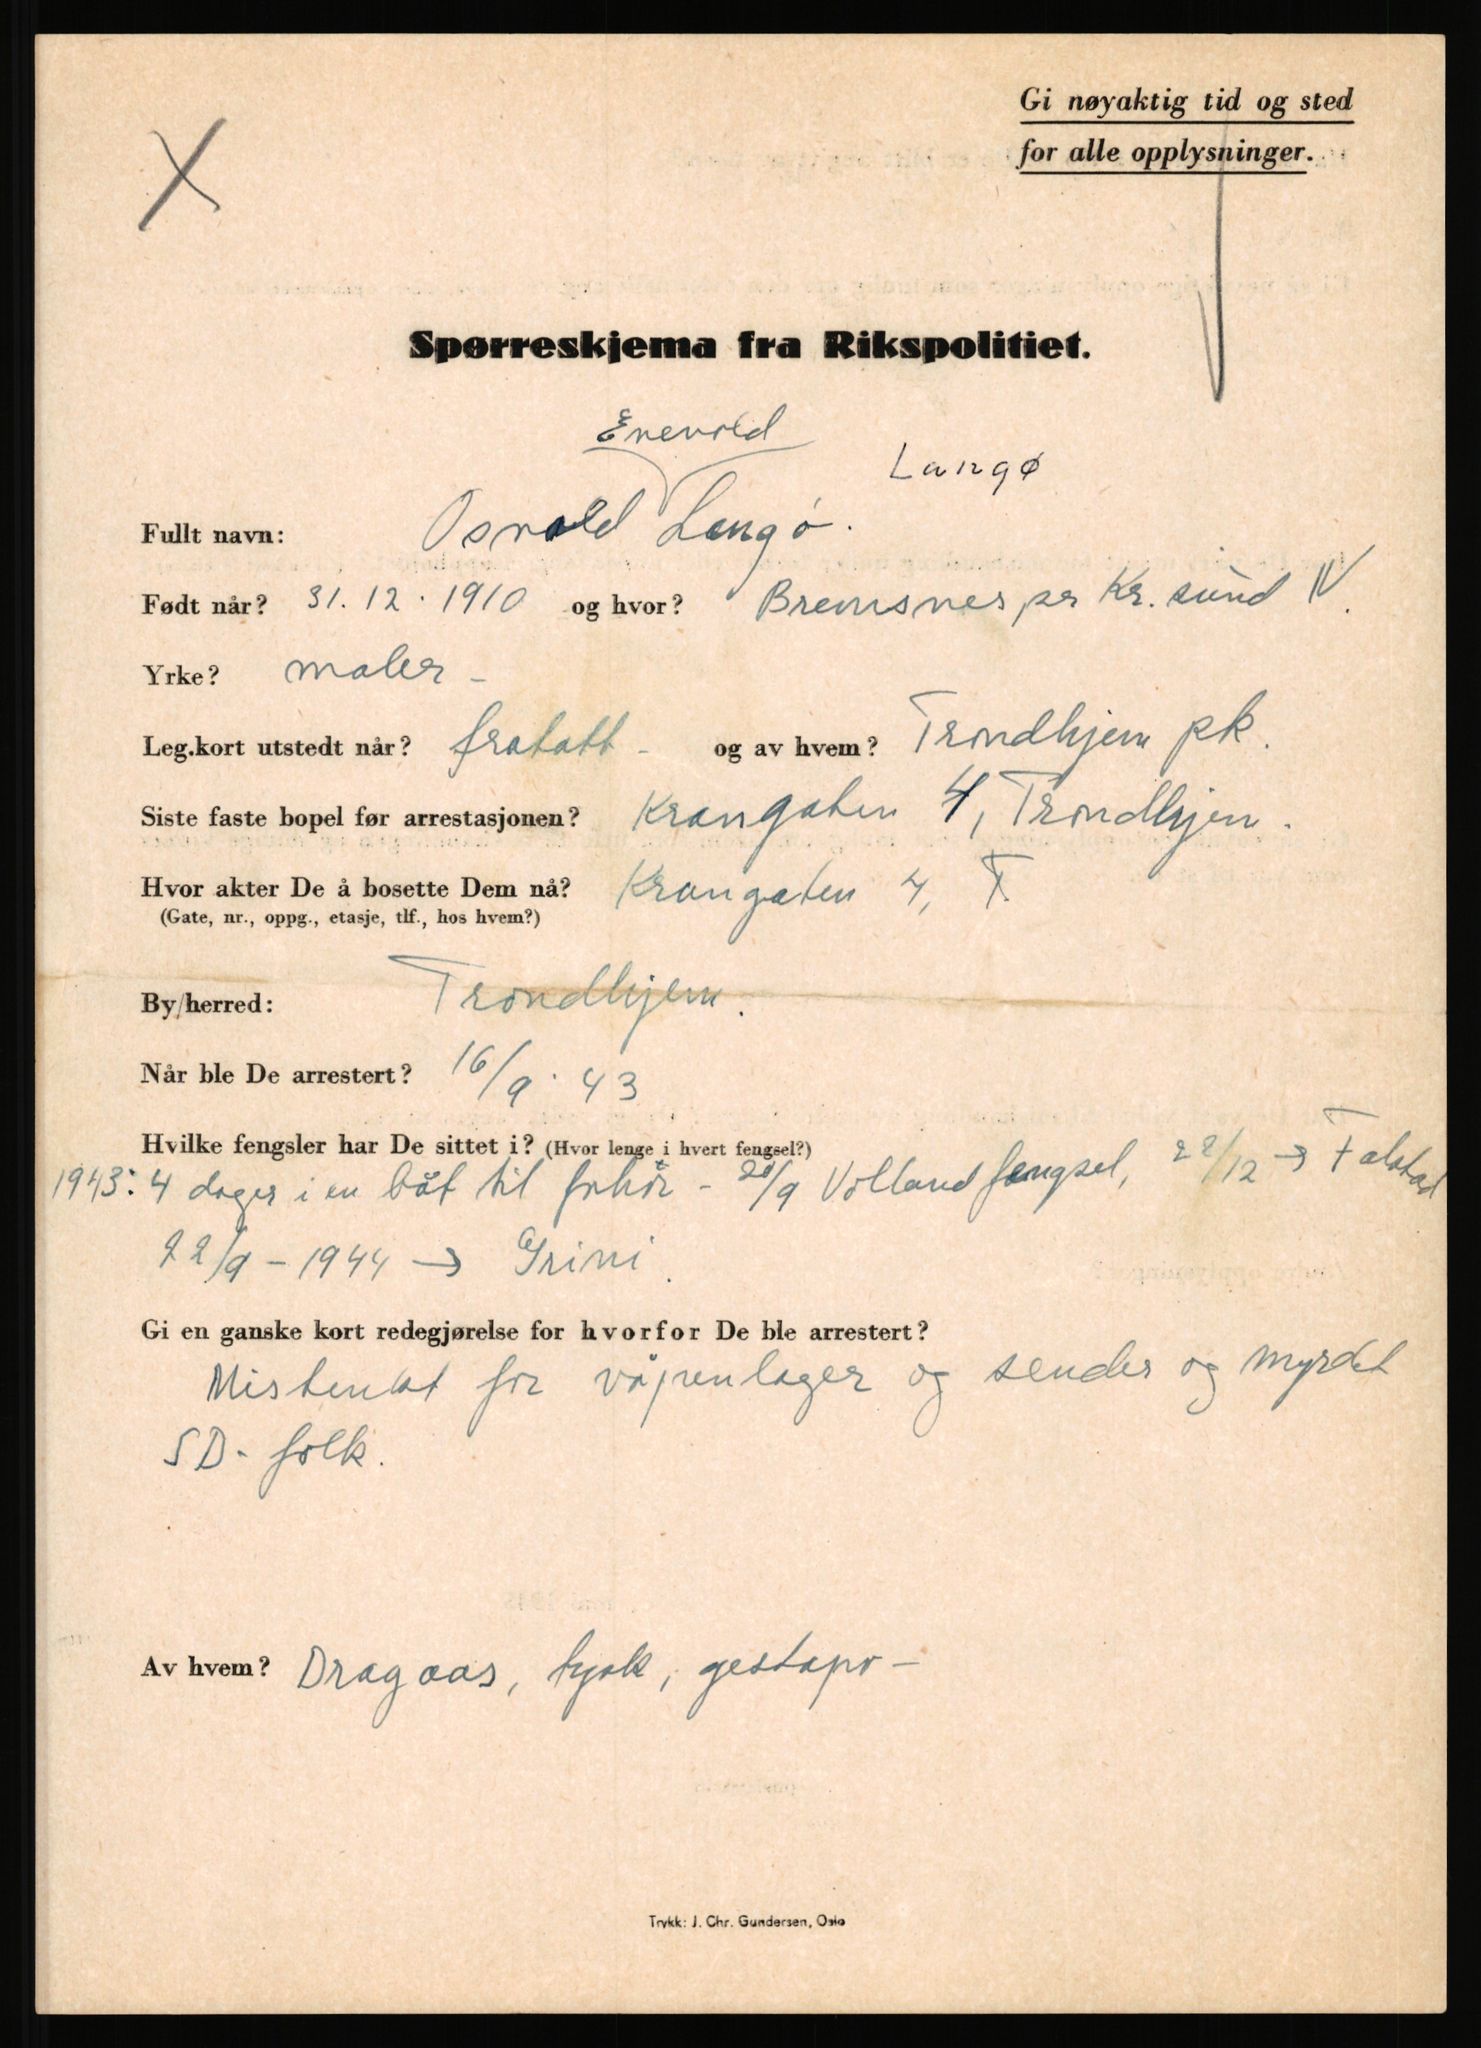 Gi nøyaktig tid og sted
for alle opplysninger.
Spørreskjema fra Rikspolitiet.
Enevold
Langø
Fullt navn: Osvald Langø.
Født når? 31.12.1910 og hvor? Bremsnes, per Kr. sund N.
Yrke? maler -
Leg.kort utstedt når? fratatt - og av hvem? Trondhjem pk.
Siste faste bopel før arrestasjonen? Krangaten 4, Trondhjem.
Hvor akter De å bosette Dem nå? Krangaten 4, T.
(Gate, nr., oppg., etasje, tlf., hos hvem?)
By/herred: Trondhjem.
Når ble De arrestert? 16/9. 43
Hvilke fengsler har De sittet i? (Hvor lenge i hvert fengsel?)
1943: 4 dager i en båt til forhör - 20/9 Volland fengsel, 22/12 → Falstad
22/9 - 1944 → Grini.
Gi en ganske kort redegjørelse for hvorfor De ble arrestert?
Mistenkt for våpenlager og sender og myrdet
SD- folk.
Av hvem? Dragaas, tysk, gestapo -
Trykk: J. Chr. Gundersen, Oslo